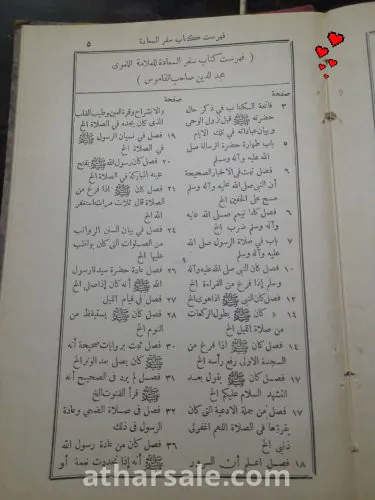 فهرست كتاب سفر السعادة
٥
( فهرست كتاب سفر السعادة للعلامة اللغوى
مجد الدين صاحب القاموس )
صحيفة
٣ فاتحة الكتاب فى ذكر حال
حضرته ﷺ قبل نزول الوحى
وبيان عباداته فى تلك الايام
٥ باب طهارة حضرة الرسالة صلى
الله عليه وآله وسلم
٦ فصل ثبت فى الاخبار الصحيحة
أن النبى صلى الله عليه وآله وسلم
مسح على الخفين الخ
٦ فصل كان تيمم صلى الله عليه
وآله وسلم ضرب الخ
٧ باب فى صلاة الرسول صلى الله
عليه وآله وسلم
١٠ فصل كان النبى صلى الله عليه وآله
وسلم إذا فرغ من القراءة الخ
١٢ فصل كان النبى ﷺ اذا هوى الخ
١٤ « كان ﷺ يطول الركعات
من صلاة الليل الخ
١٤ فصل كان ﷺ اذا فرغ من
السجدة الاولى رفع رأسه الخ
١٧ فصل كان ﷺ يقول بعد
التشهد السلام عليكم الخ
١٧ فصل من جملة الادعية التى كان
يقرأها فى الصلاة اللهم اغفرلى
ذنبى الخ
١٨ فصل اعلم أن السرور
صحيفة
والانشراح وقرة العين وطيب القلب
الذى كان يجده فى الصلاة الخ
١٩ فصل فى نسيان الرسول ﷺ
فى الصلاة الخ
٢٠ فصل كان رسول الله ﷺ يفتح
عينه المباركة فى الصلاة الخ
٢١ فصل كان ﷺ اذا فرغ من
الصلاة قال ثلاث مرات استغفر
الله الخ
٢٤ فصل فى بيان السنن الرواتب
من الصلوات التى كان يواظب
عليها الخ
٢٦ فصل عادة حضرة سيدنا رسول
الله ﷺ أنه كان إذا صلى الخ
٢٧ فصل فى قيام الليل
٢٨ فصل كان ﷺ يستيقظ من
النوم الخ
٣٠ فصل ثبت بروايات صحيحة أنه
ﷺ كان يصلى بعد الوتر الخ
٣١ فصل لم يرد فى الصحيح أنه
قرأ القنوت الخ
٣٢ فصل فى صلاة الضحى وعادة
الرسول فى ذلك
٣٦ فصل كان من عادة رسول الله
ﷺ أنه إذا تجددت نعمة أو
atharsale.com